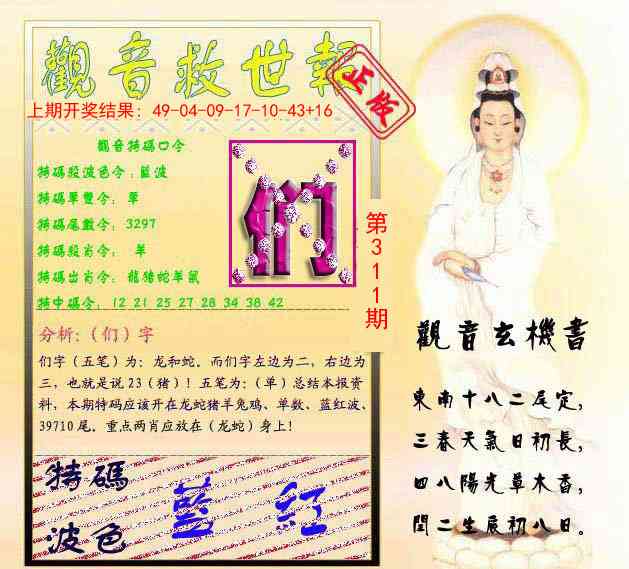 觀音救世報
正版
上期开奖结果：49-04-09-17-10-43+16
觀音特碼口令
特碼段波色令：藍波
特碼單雙令： 單
特碼尾數令： 3297
特碼段肖令： 單
特碼出肖令： 龍猪蛇羊鼠
特中碼令： 12 21 25 27 28 34 38 42
们
第311期
分析:（们）字
们字（五笔）为：龙和蛇。而们字左边为二，右边为
三，也就是说 23（猪）！五笔为：（单）总结本报资
料，本期特码应该开在龙蛇猪羊兔鸡、单数、蓝红波、
39710 尾。重点两肖应放在（龙蛇）身上！
特碼
波色
藍 紅
觀音玄機書
東南十八二尾定，
三春天氣日初長，
四八陽光草木香，
閏二生辰初八日。